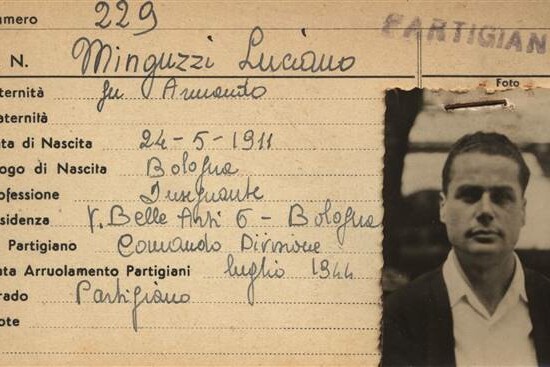 umero 229 PARTIGIAN
N. Minguzzi Luciano
Foto
aternità fu Armando
aternità
ata di Nascita 24-5-1911
ogo di Nascita Bologna
ofessione Insegnante
sidenza V. Belle Arti 6 - Bologna
Partigiano Comando Divisione
ata Arruolamento Partigiani luglio 1944
rado Partigiano
ote